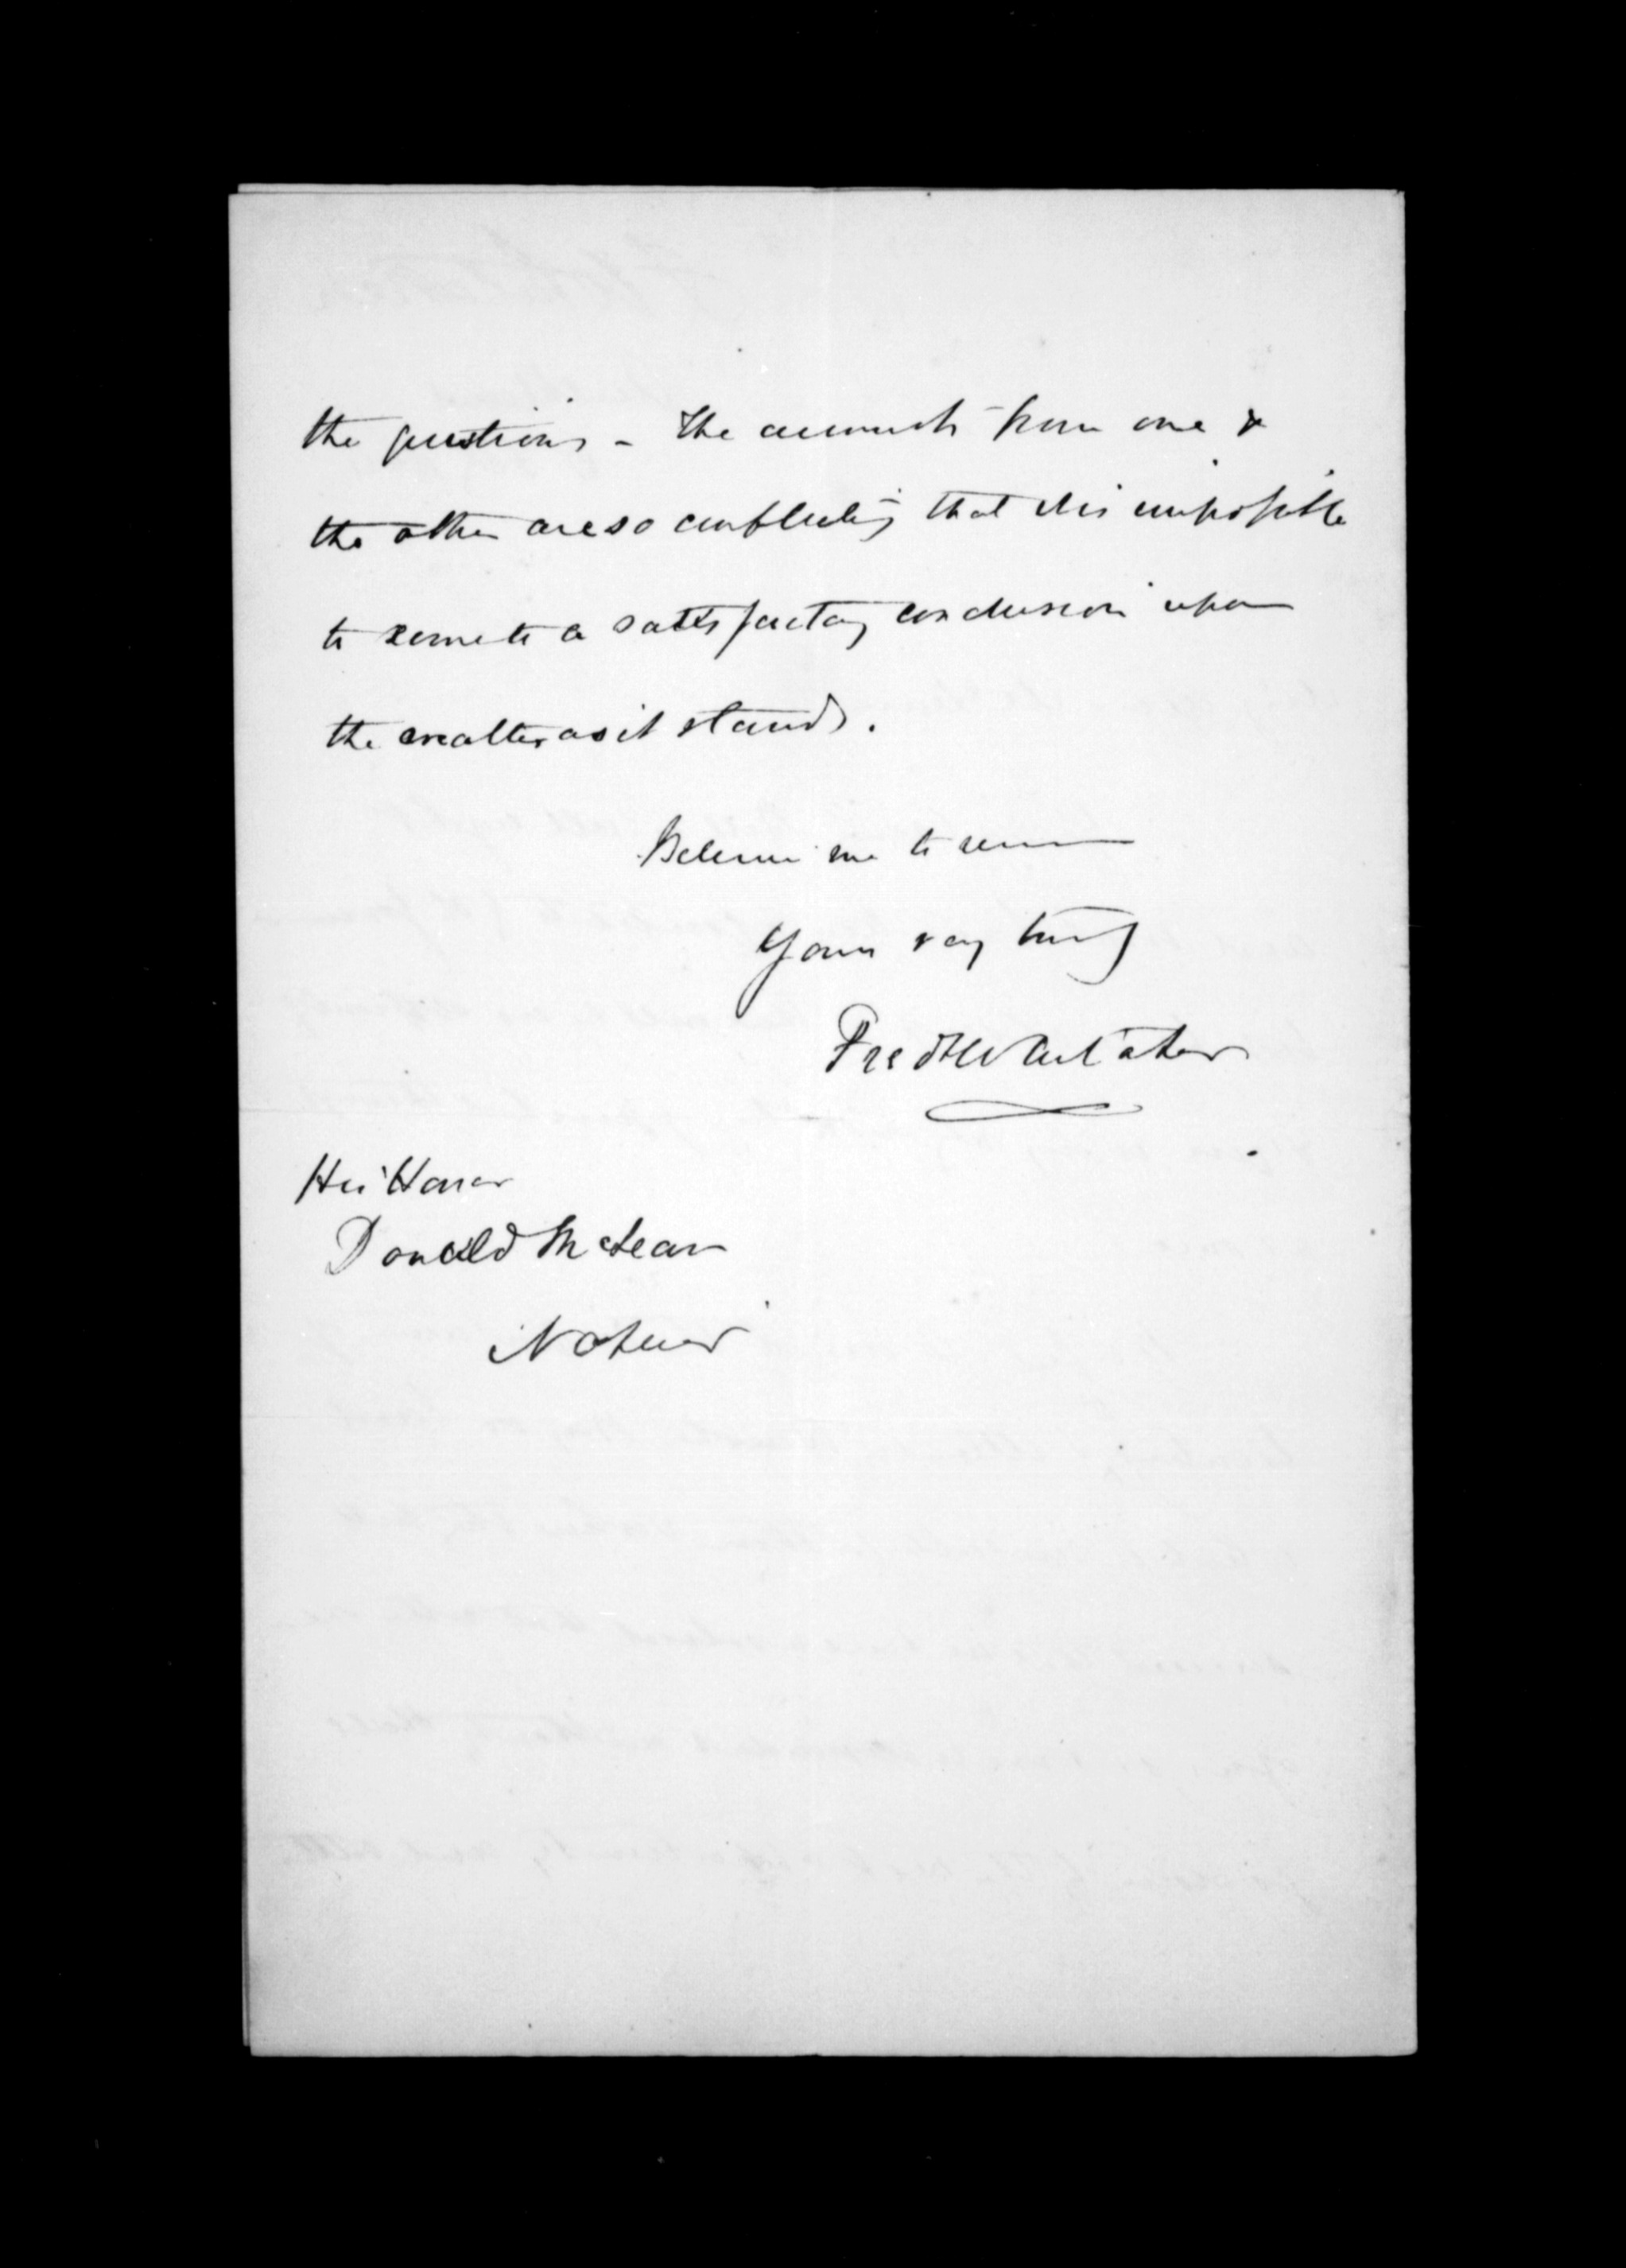 the questions - The accounts from one &
the other are so conflicting that it is impossible
to come to a satisfactory conclusion upon
the matter as it stands.
Believe me to remain
Yours very truly
Fred Whitaker
His Honor
Donald McLean
Napier